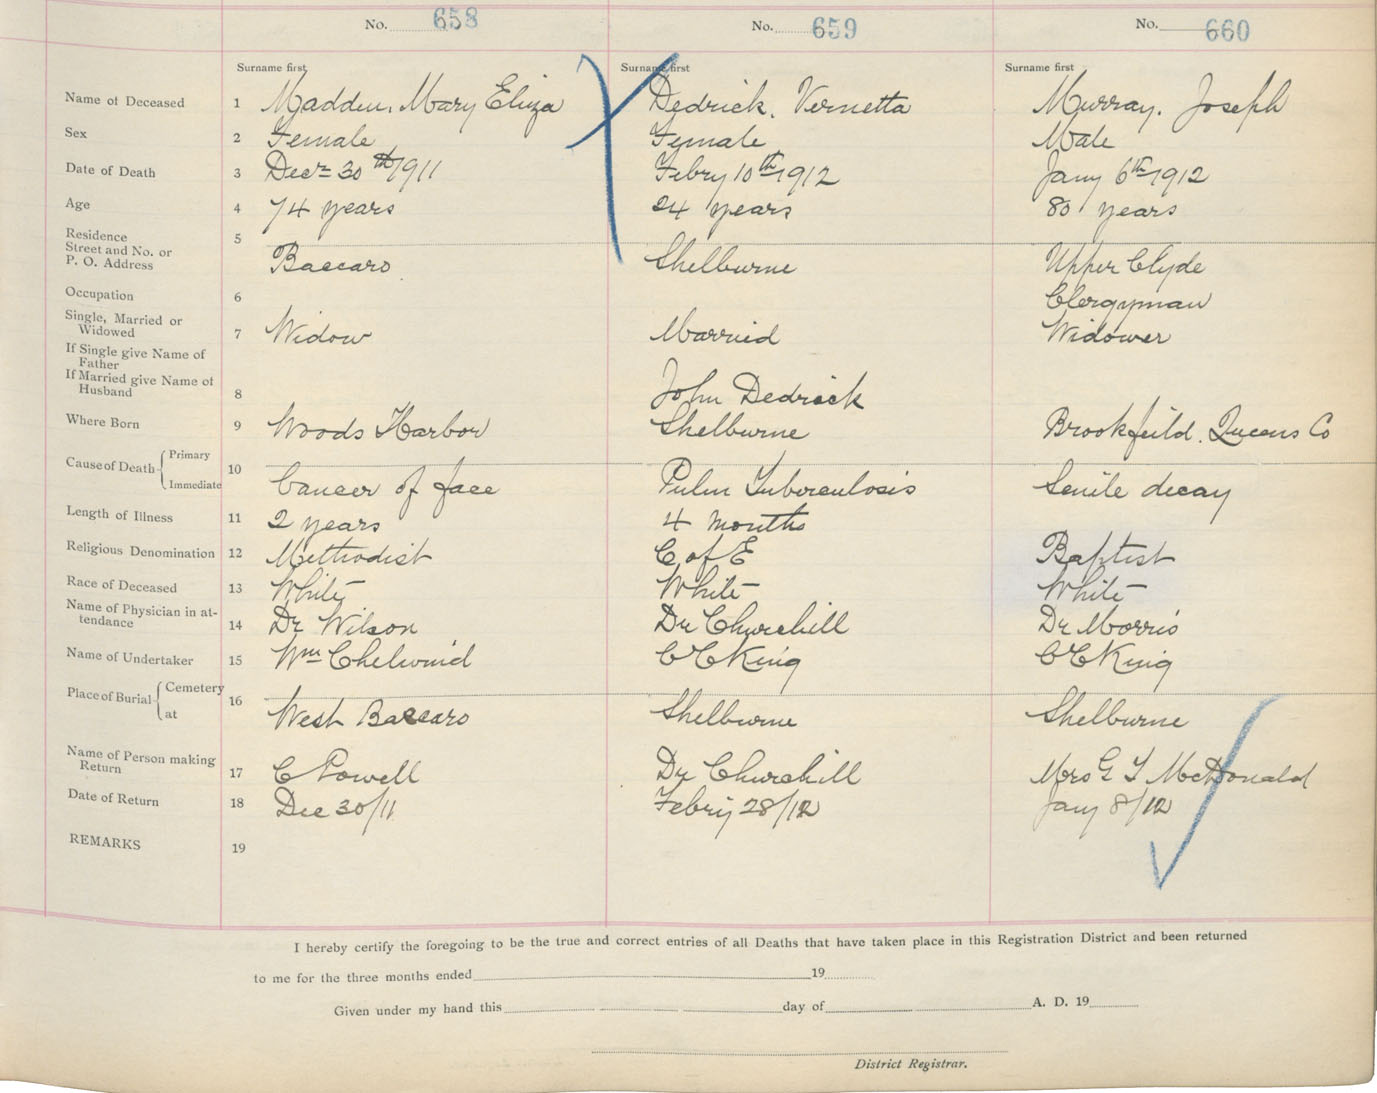 No. 658 No. 659 No. 660
Surname first Surname first Surname first
Name of Deceased 1 Madden, Mary Eliza Dedrick, Vernetta Murray, Joseph
Sex 2 Female Female Male
Date of Death 3 Decr 30th 1911 Febry 10th 1912 Jany 6th 1912
Age 4 74 years 24 years 80 years
Residence 5
Street and No. or
P. O. Address Baccaro Shelburne Upper Clyde
Occupation 6 Clergyman
Single, Married or
Widowed 7 Widow Married Widower
If Single give Name of
Father
If Married give Name of
Husband 8 John Dedrick
Where Born 9 Woods Harbor Shelburne Brookfeild, Queens Co
Cause of Death Primary 10
Immediate Cancer of face Pulm Tuberculosis Senile decay
Length of Illness 11 2 years 4 months
Religious Denomination 12 Methodist C of E Baptist
Race of Deceased 13 White White White
Name of Physician in at-
tendance 14 Dr Wilson Dr Churchill Dr Morris
Name of Undertaker 15 Wm Chelwind C C King C C King
Place of Burial Cemetery 16
at West Baccaro Shelburne Shelburne
Name of Person making
Return 17 C Powell Dr Churchill Mrs G T McDonald
Date of Return 18 Dec 30/11 Febry 28/12 Jany 8/12
REMARKS 19
I hereby certify the foregoing to be the true and correct entries of all Deaths that have taken place in this Registration District and been returned
to me for the three months ended 19
Given under my hand this day of A. D. 19
District Registrar.